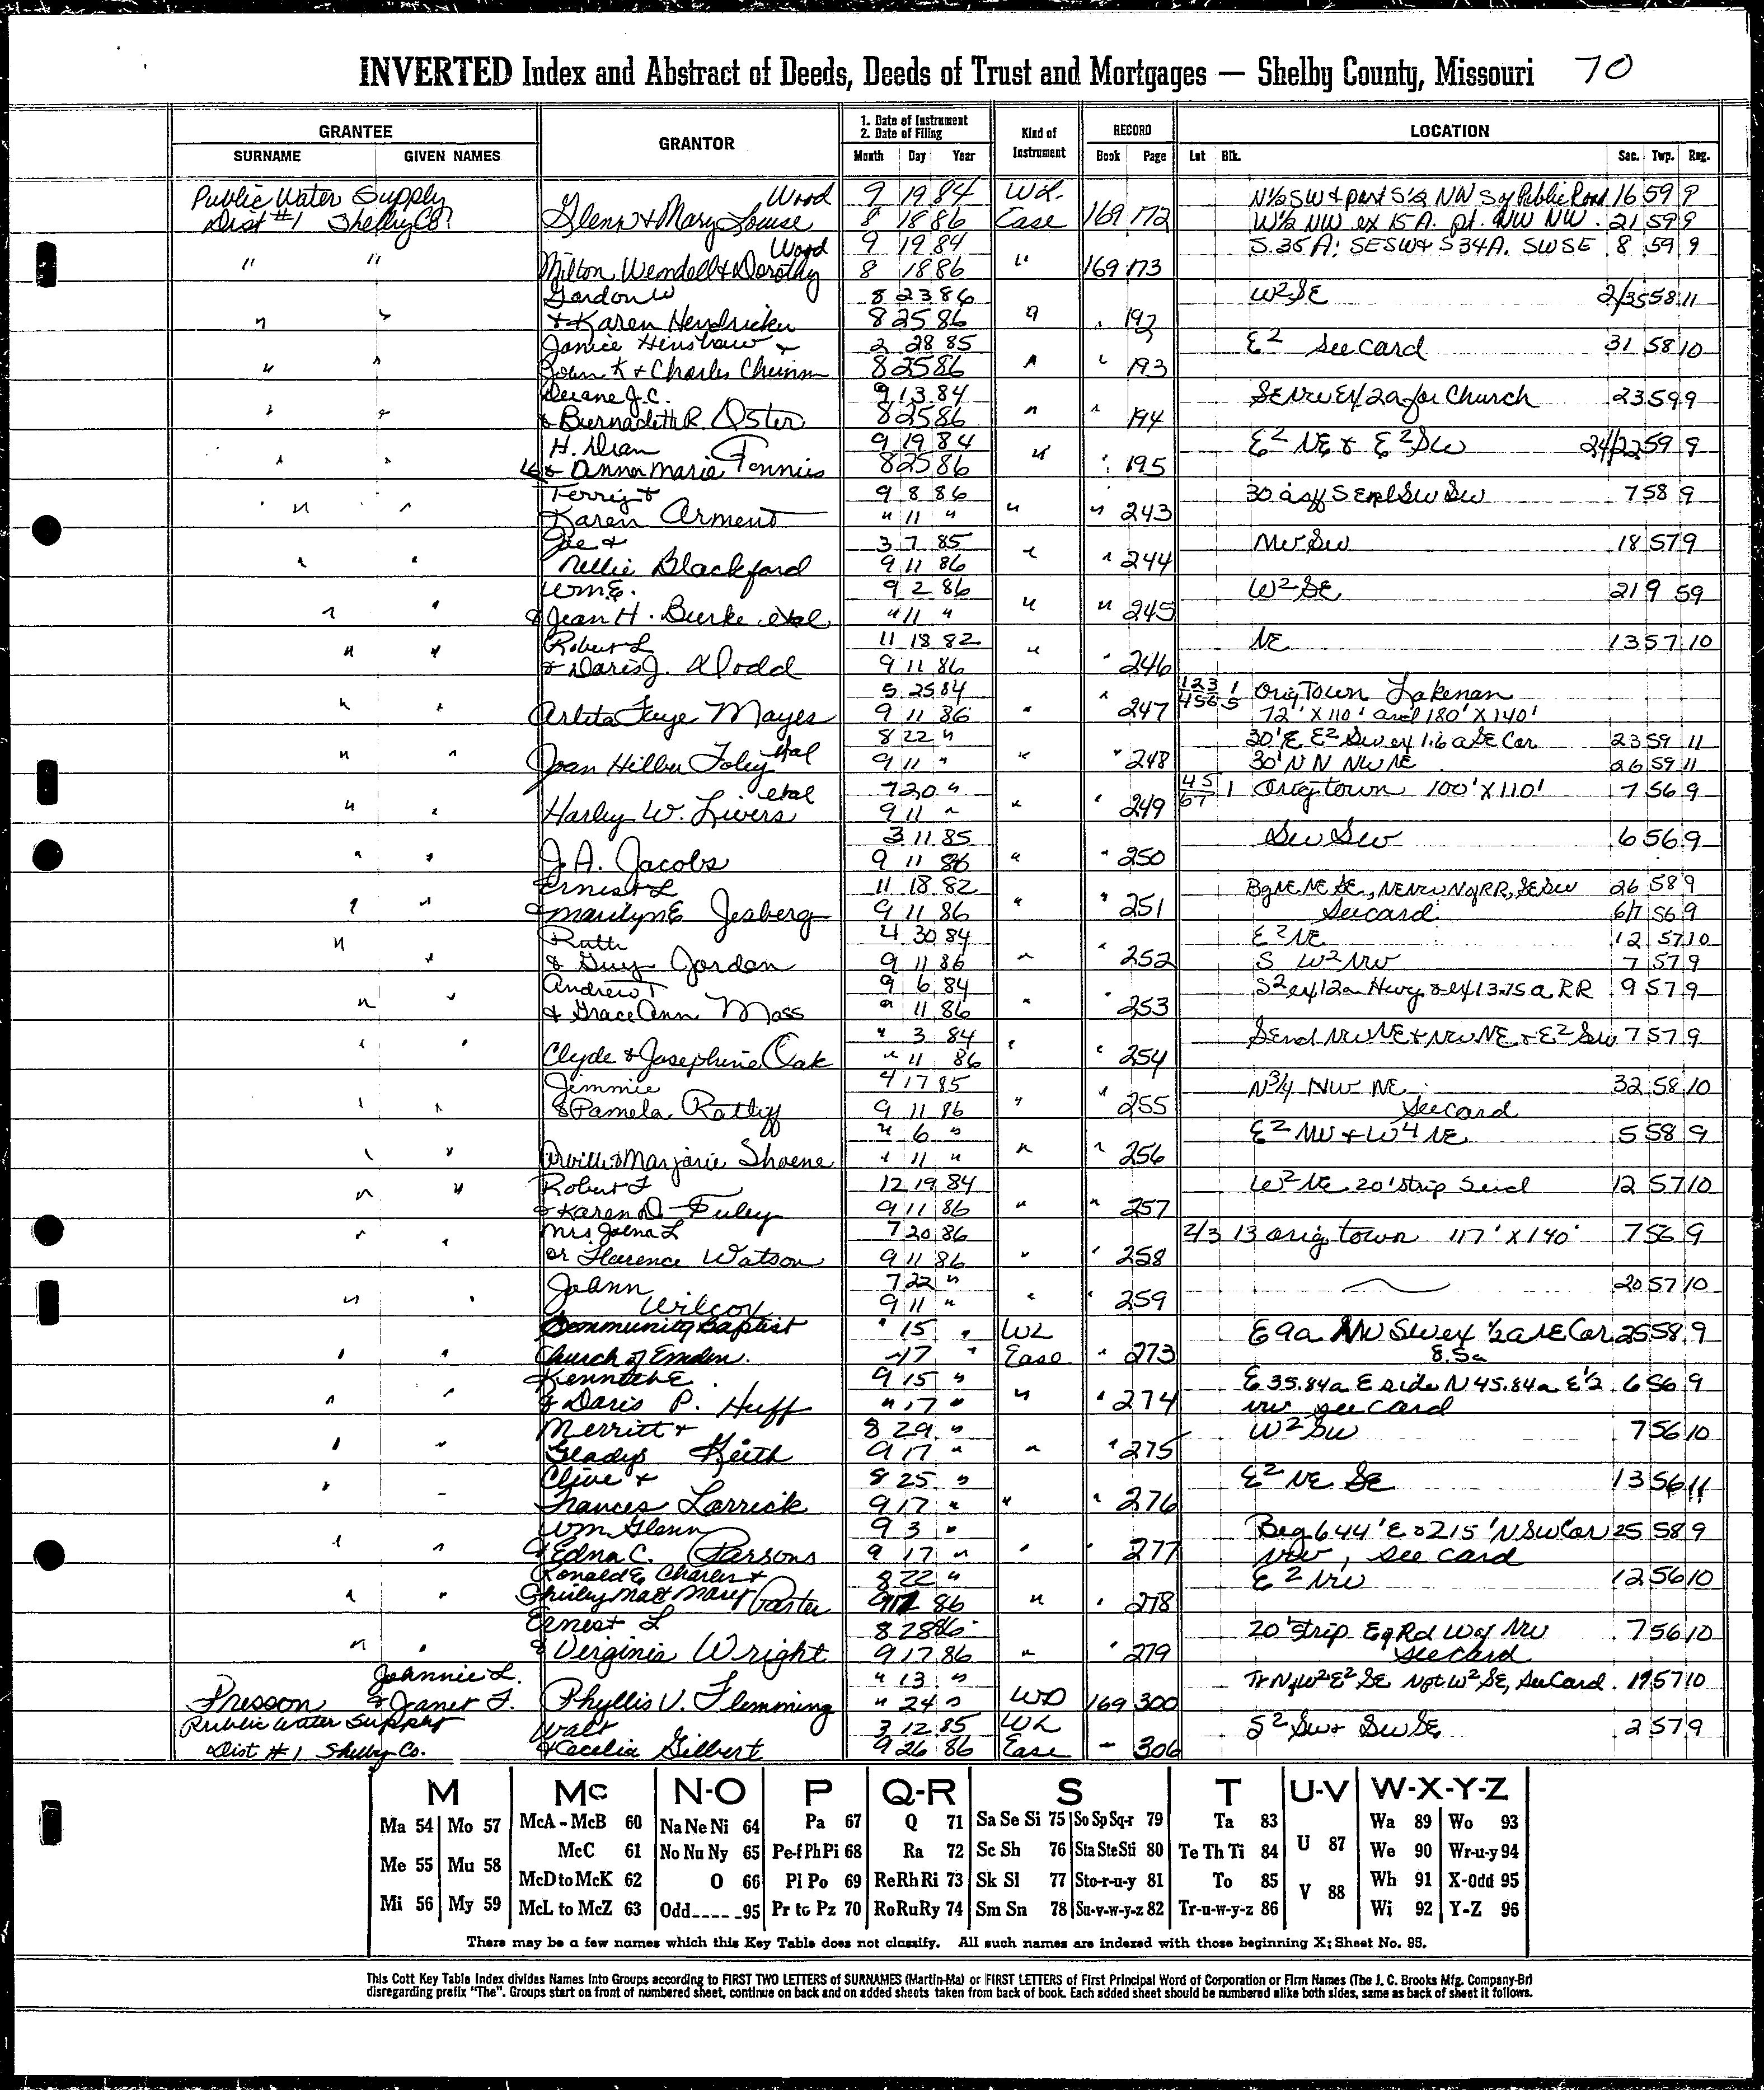 INVERTED Index and Abstract of Deeds, Deeds of Trust and Mortgages — Shelby County, Missouri 70
GRANTEE GRANTOR 1. Date of Instrument 2. Date of Filing Kind of Instrument RECORD LOCATION
SURNAME GIVEN NAMES Month Day Year Book Page Lot Blk. Sec. Twp. Rng.
Public Water Supply Wood 9 19 84 WL N½ SW & part S½ NW S of Public Road 16 59 9
Dist #1 Shelby Co. Glenn & Mary Louise 8 18 86 Ease 169 172 W½ NW ex 15 A. pt. NW NW. 21 59 9
Wood 9 19 84 S. 35 A; SESW & S 34A. SWSE 8 59 9
" " Milton Wendell & Dorothy 8 18 86 " 169 173
Gordon W 8 23 86 W2 SE 2/35 58 11
" " & Karen Hendricks 8 25 86 " " 192
Janice Henshaw & 2 28 85 E2 See Card 31 58 10
" " John K & Charles 8 25 86 " " 193
Duane J.C. 9 13 84 SENW Ex 2a for Church 23 59 9
" " & Bernadette R. Oster 8 25 86 " " 194
H. Dean 9 19 84 E2 NE & E2 SW 24/22 59 9
" " & Anna Marie 8 25 86 " " 195
Terry & 9 8 86 30 a off S End SW SW 7 58 9
" " Karen Arment " 11 " " " 243
Joe & 3 7 85 NW SW 18 57 9
" " Nellie Blackford 9 11 86 " " 244
Wm E. 9 2 86 W2 SE 21 9 59
" " & Jean H. Burke etal " 11 " " " 245
Robert L 11 18 82 NE 13 57 10
" " & Doris J. Dodd 9 11 86 " " 246
5 25 84 123 1 456 5 Orig Town Lakenan
" " Arleta Faye Mayes 9 11 86 " " 247 72' X 110' and 180' X 140'
etal 8 22 " 30' E E2 SW ex 1.6 a SE Cor 23 59 11
" " Joan Hilbu Foley 9 11 " " " 248 30' N N NW NE 26 59 11
etal 7 20 " 45 67 1 Orig town 100' X 110' 7 56 9
" " Harley W. Livers 9 11 " " " 249
3 11 85 SW SW 6 56 9
" " J.A. Jacobs 9 11 86 " " 250
Ernest L 11 18 82 Bg NE NE SE, NENW N of RR, SE SW 26 58 9
" " & Marilyn E Jesberg 9 11 86 " " 251 See card 6/7 56 9
Ruth 4 30 84 E2 NE 12 57 10
" " & Guy Jordan 9 11 86 " " 252 S W2 NW 7 57 9
Andrew T 9 6 84 S2 ex 12a Hwy & ex 13.75 a RR 9 57 9
" " & Grace Ann Moss " 11 86 " " 253
" 3 84 S end NW NE & NW NE & E2 SW 7 57 9
" " Clyde & Josephine Oak " 11 86 " " 254
Jimmie 4 17 85 N3/4 NW NE 32 58 10
" " & Pamela Ratliff 9 11 86 " " 255 See card
" 6 " E2 NW & W4 NE 5 58 9
" " Orville & Marjorie Shoene " 11 " " " 256
Robert F 12 19 84 W2 NE 20' strip S end 12 57 10
" " & Karen D. Fuley 9 11 86 " " 257
Mrs L 7 20 86 2/3 13 orig town 117' X 140' 7 56 9
" " or Florence Watson 9 11 86 " " 258
JoAnn 7 22 " 20 57 10
" " Wilcox 9 11 " " " 259
Community Baptist " 15 " WL E 9a NW SW ex ½ a NE Cor 25 58 9
" " Church of Emden. " 17 " Ease " 273 8.5a
Kenneth E. 9 15 " E 35.84a E side N 45.84a E½ 6 56 9
" " & Doris P. Huff " 17 " " " 274 NW see card
Merritt & 8 29 " W2 SW 7 56 10
" " Gladys Keith 9 17 " " " 275
Clive & 8 25 " E2 NE SE 13 56 11
" " Frances Larrick 9 17 " " " 276
Wm Glenn 9 3 " Beg 644' E & 215' N SW Cor 25 58 9
" " & Edna C. Parsons 9 17 " " " 277 NW, see card
Ronald E Charles & 8 22 " E2 NW 12 56 10
" " Shirley Mae & Mary Porter 9 17 86 " " 278
Ernest L 8 28 86 20' strip E of Rd W of NW 7 56 10
" " & Virginia Wright 9 17 86 " " 279 See Card
Johnnie L. " 13 " Tr N of W2 E2 SE N pt W2 SE, See Card. 19 57 10
Presson & Janet F. Phyllis V. Flemming " 24 " WD 169 300
Public Water Supply Walt 3 12 85 WL S2 SW & SW SE 2 57 9
Dist #1 Shelby Co. & Cecelia Gilbert 9 26 86 Ease " 306
M Mc N-O P Q-R S T U-V W-X-Y-Z
Ma 54 Mo 57 McA - McB 60 Na Ne Ni 64 Pa 67 Q 71 Sa Se Si 75 So Sp Sq-r 79 Ta 83 Wa 89 Wo 93
McC 61 No Nu Ny 65 Pe-f Ph Pi 68 Ra 72 Sc Sh 76 Sta Ste Sti 80 Te Th Ti 84 U 87 We 90 Wr-u-y 94
Me 55 Mu 58 McD to McK 62 O 66 Pl Po 69 Re Rh Ri 73 Sk Sl 77 Sto-r-u-y 81 To 85 V 88 Wh 91 X-Odd 95
Mi 56 My 59 McL to McZ 63 Odd_____95 Pr to Pz 70 Ro Ru Ry 74 Sm Sn 78 Su-v-w-y-z 82 Tr-u-w-y-z 86 Wi 92 Y-Z 96
There may be a few names which this Key Table does not classify. All such names are indexed with those beginning X; Sheet No. 95.
This Cott Key Table Index divides Names Into Groups according to FIRST TWO LETTERS of SURNAMES (Martin-Ma) or FIRST LETTERS of First Principal Word of Corporation or Firm Names (The J. C. Brooks Mfg. Company-Br)
disregarding prefix "The". Groups start on front of numbered sheet, continue on back and on added sheets taken from back of book. Each added sheet should be numbered alike both sides, same as back of sheet it follows.